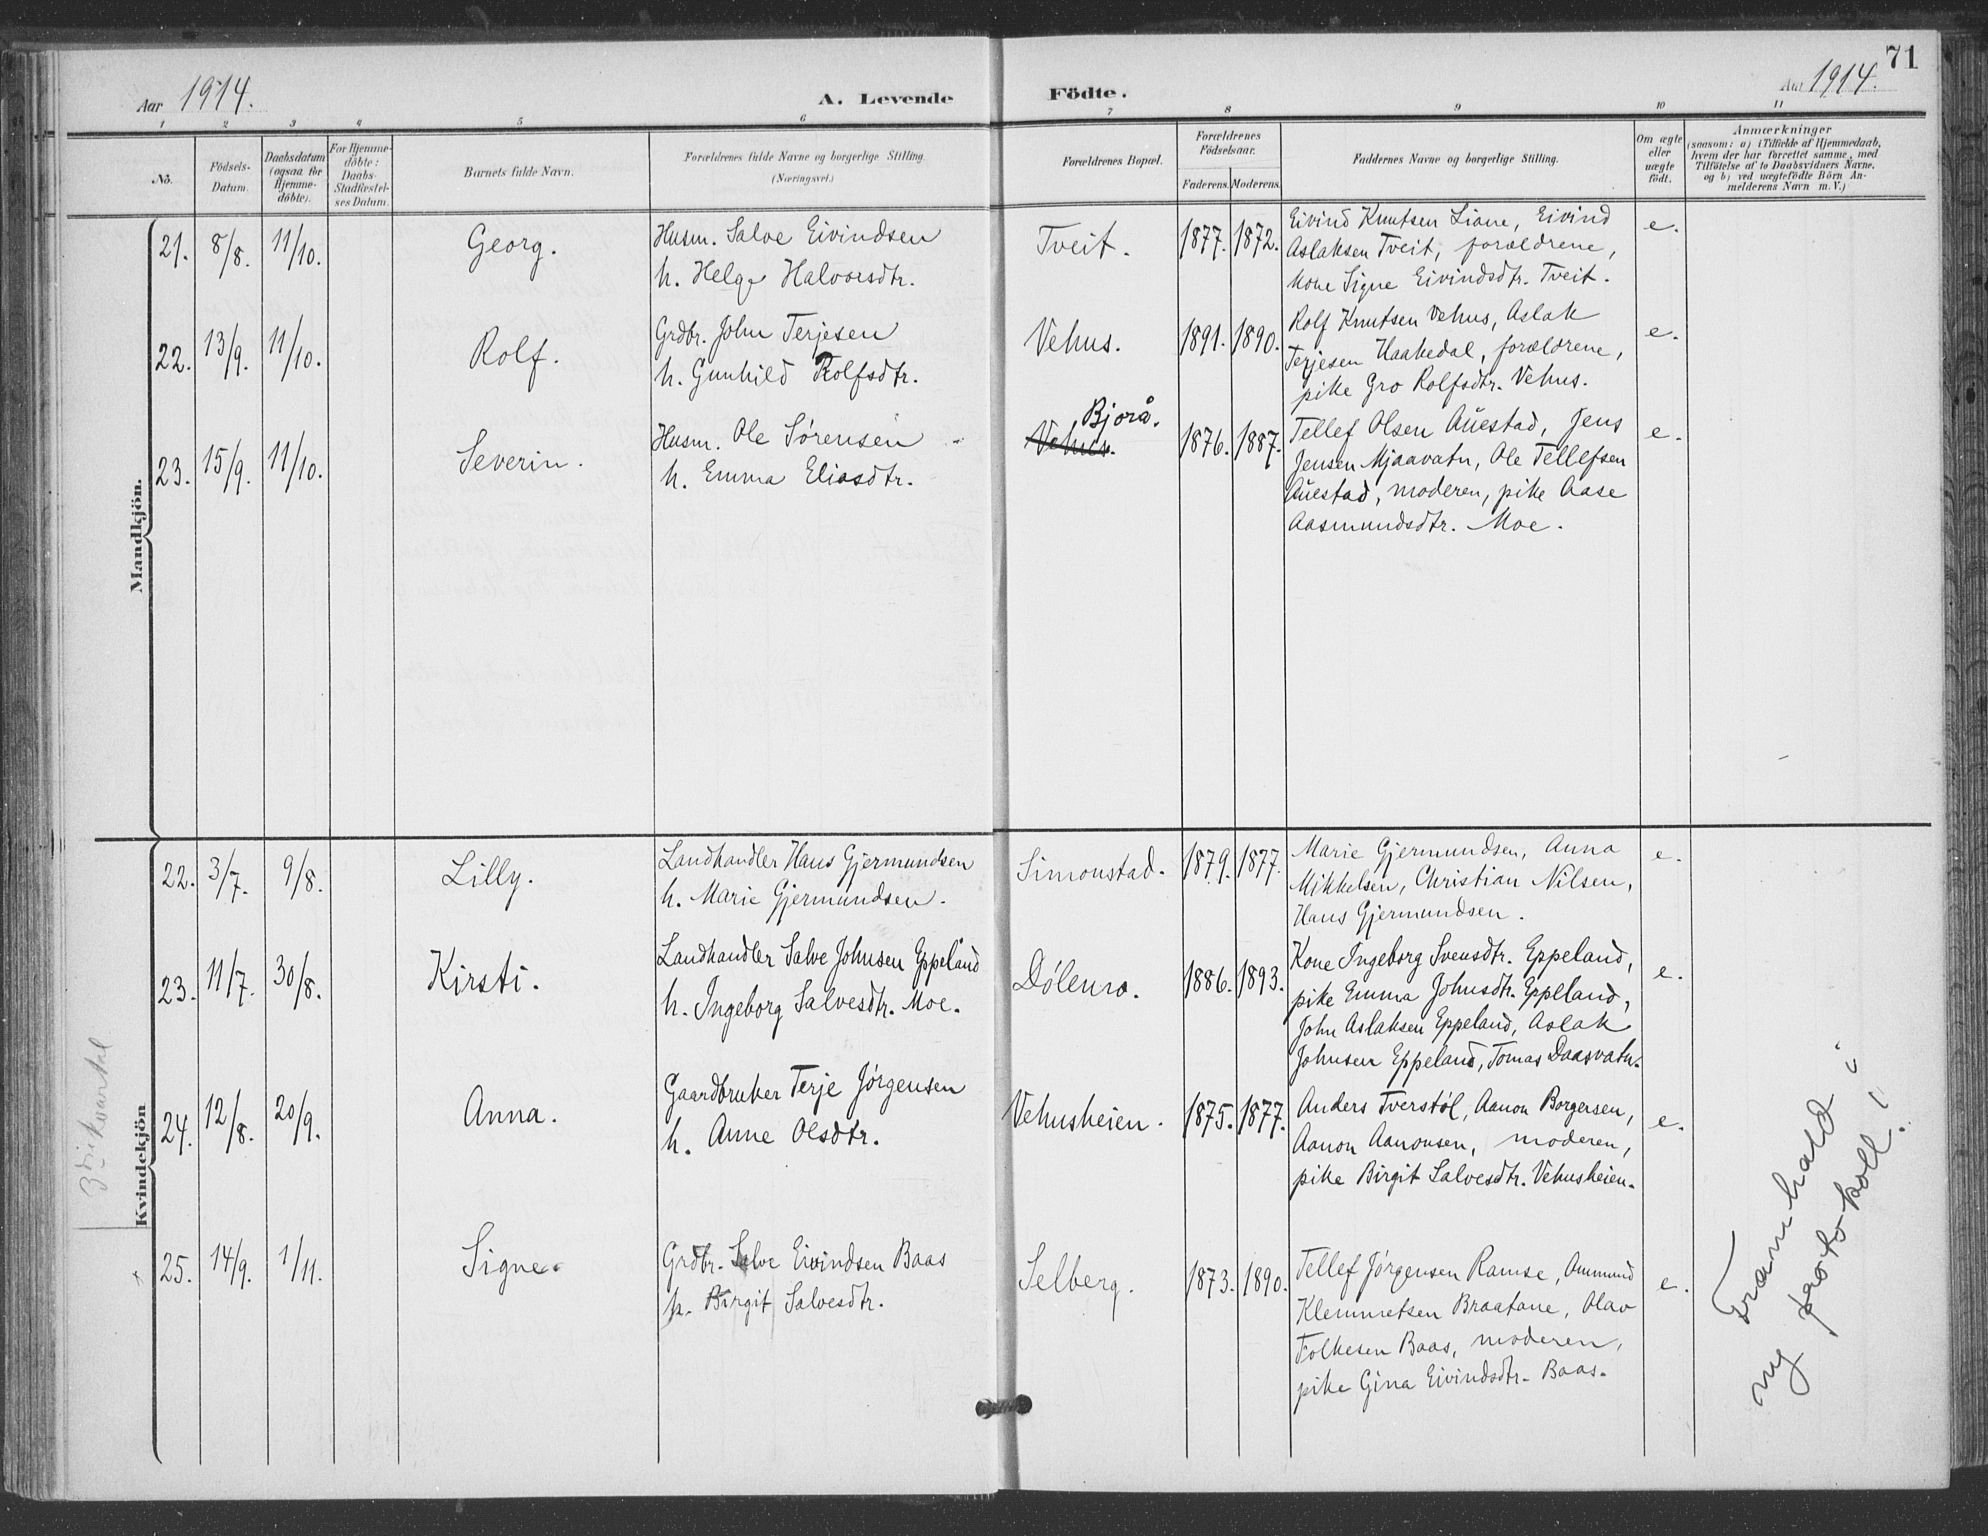 71
Aar 1914.
A. Levende Födte.
Aar 1914.
1 2 3 4 5 6 7 8 9 10 11
No.
Födsels-
Datum.
Daabsdatum
(ogsaa for
Hjemme-
döbte).
For Hjemme-
döbte:
Daabs-
Stadfæstel-
ses Datum.
Barnets fulde Navn.
Forældrenes fulde Navne og borgerlige Stilling.
(Næringsvei.)
Forældrenes Bopæl.
Forældrenes
Födselsaar.
Faderens. Moderens.
Faddernes Navne og borgerlige Stilling.
Om ægte
eller
uægte
födt.
Anmærkninger
(saasom: a) i Tilfælde af Hjemmedaab,
hvem der har forrettet samme, med
Tilföielse af to Daabsvidners Navne,
og b) ved uægtefödte Börn An-
melderens Navn m. V.)
Mandkjön.
21. 8/8. 11/10. Georg. Husm. Salve Eivindsen
h. Helge Halvorsdtr.
Tveit. 1877. 1872. Eivind Knutsen Liane, Eivind
Aslaksen Tveit, forældrene,
kone Signe Eivindsdtr. Tveit.
e.
22. 13/9. 11/10. Rolf. Grdbr. John Terjesen
h. Gunhild Rolfsdtr.
Vehus. 1891. 1890. Rolf Knutsen Vehus, Aslak
Terjesen Haakedal, forældrene,
pike Gro Rolfsdtr. Vehus.
e.
23. 15/9. 11/10. Severin. Husm. Ole Sørensen
h. Emma Eliasdtr.
Bjorå.
Vehus.
1876. 1887. Tellef Olsen Auestad, Jens
Jensen Mjaavatn, Ole Tellefsen
Auestad, moderen, pike Aase
Aasmundsdtr. Moe.
e.
Kvindekjön
22. 3/7. 9/8. Lilly. Landhandler Hans Gjermundsen
h. Marie Gjermundsen.
Simonstad. 1879. 1877. Marie Gjermundsen, Anna
Mikkelsen, Christian Nilsen,
Hans Gjermundsen.
e.
23. 11/7. 30/8. Kirsti. Landhandler Salve Johnsen Eppeland
h. Ingeborg Salvesdtr. Moe.
Dølemo. 1886. 1893. Kone Ingeborg Svensdtr. Eppeland,
pike Emma Johnsdtr. Eppeland,
John Aslaksen Eppeland, Aslak
Johnsen Eppeland, Tomas Daasvatn.
e.
24. 12/8. 20/9. Anna. Gaardbruker Terje Jørgensen
h. Anne Olsdtr.
Vehusheien. 1875. 1877. Anders Tverstøl, Aanon Borgersen,
Aanon Aanonsen, moderen,
pike Birgit Salvesdtr. Vehusheien.
e.
25. 14/9. 1/11. Signe. Grdbr. Salve Eivindsen Baas
h. Birgit Salvesdtr.
Selberg. 1873. 1890. Tellef Jørgensen Ramse, Ommund
Klemmetsen Braatane, Olav
Folkesen Baas, moderen,
pike Gina Eivindsdtr. Baas.
e.
Framhald i
ny protokoll!